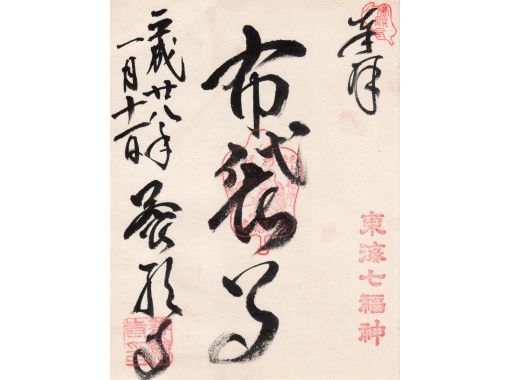 奉拝
東海七福神
布袋尊
平成廿八年
一月十一日
養願寺